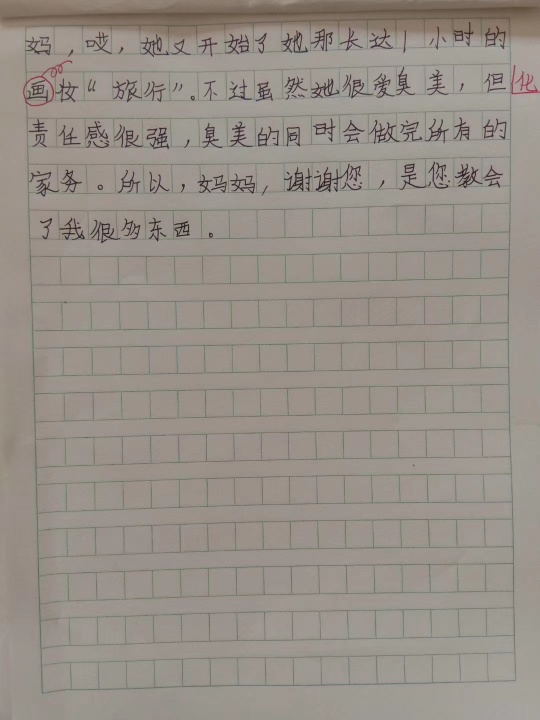 妈，哎，她又开始了她那长达1小时的
画妆“旅行”。不过虽然她很爱臭美，但
化
责任感很强，臭美的同时会做完所有的
家务。所以，妈妈，谢谢您，是您教会
了我很多东西。